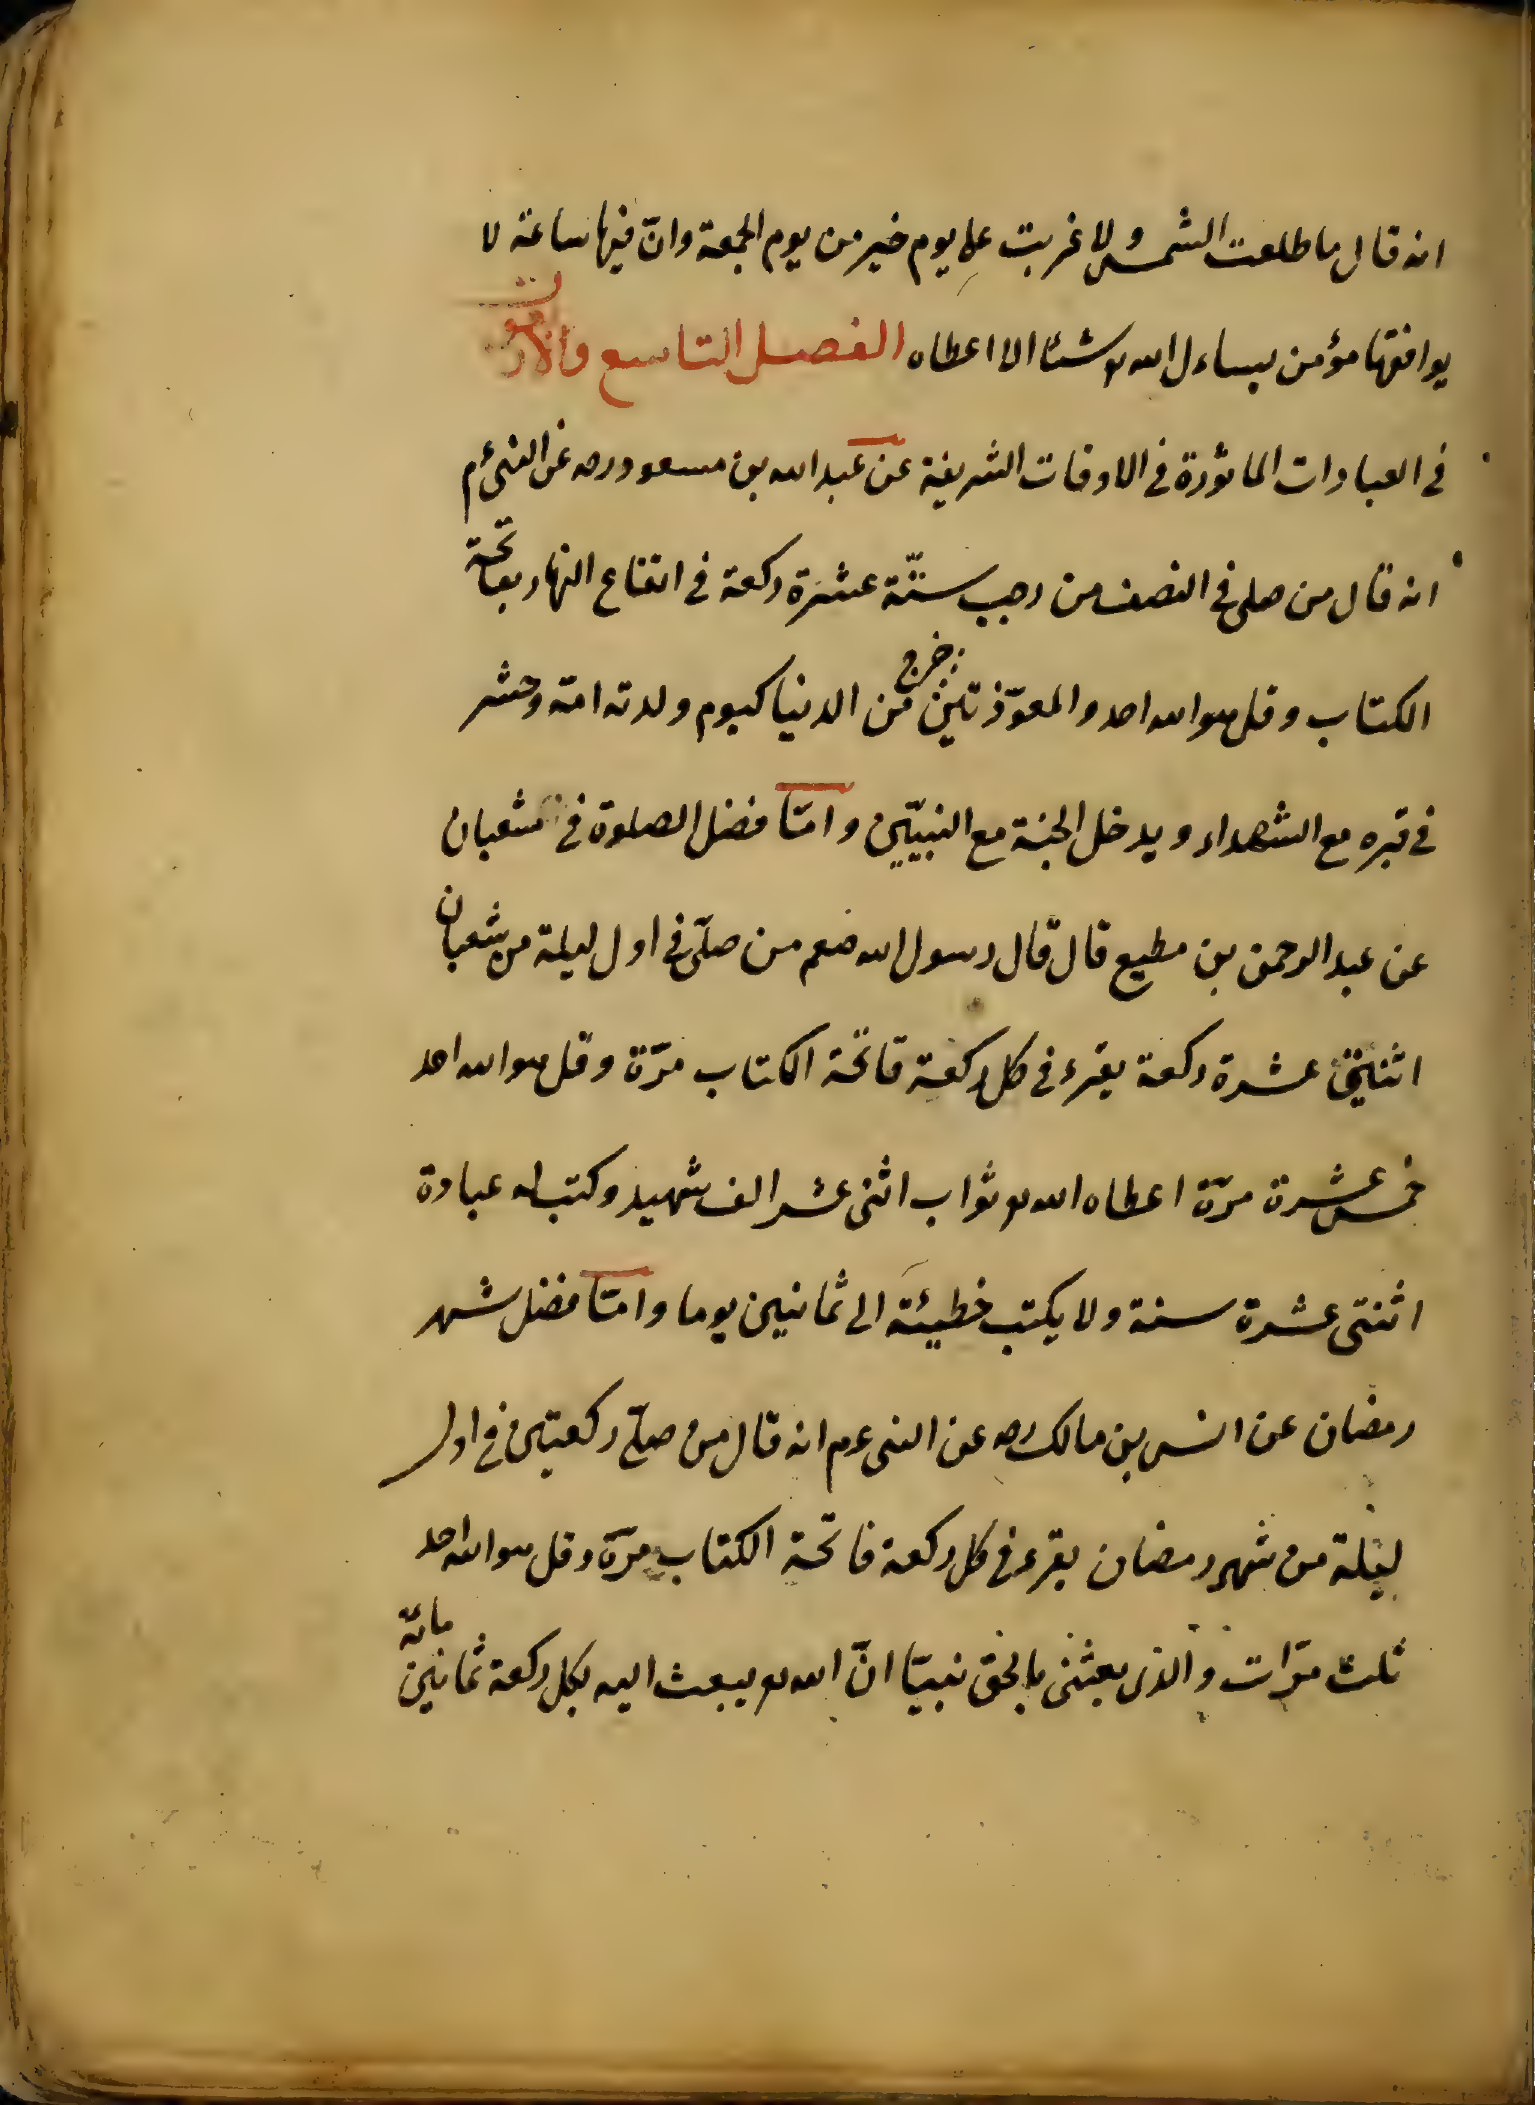 انه قال ما طلعت الشمس ولا غربت على يوم خير من يوم الجمعة وانّ فيها ساعة لا
يوافقها مؤمن يساءل الله تع شئا الا اعطاه الفصل التاسع والاربعون
فى العبادات الماثورة فى الاوقات الشريفة عن عبد الله بن مسعود رصه عن النبى عم
انه قال من صلى فى النصف من رجب ستّة عشرة ركعة فى اتفاع النهار بفاتحة
الكتاب وقل هو الله احد والمعوّذتين خرج من الدنيا كيوم ولدته امّه وحشر
فى قبره مع الشهداء ويدخل الجنة مع النبيّين وامّا فضل الصلوة فى شعبان
عن عبد الرحمن بن مطيع قال قال رسول الله صعم من صلّى فى اول ليلة من شعبان
عشرة ركعة يقرء فى كل ركعة فاتحة الكتاب مرّة وقل هو الله احد
خمس عشرة مرّة اعطاه الله تع ثواب اثنى عشر الف شهيد وكتب له عبادة
اثنتى عشرة سنة ولا يكتب خطيئة الى ثمانين يوما وامّا فضل شهر
رمضان عن انس بن مالك رصه عن النبى عم انه قال من صلّى ركعتين فى اول
ليلة من شهر رمضان يقرء فى كل ركعة فاتحة الكتاب مرّة وقل هو الله احد
ثلث مرّات والذى بعثنى بالحق نبيّا انّ الله تع يبعث اليه بكل ركعة ثمانين مائة